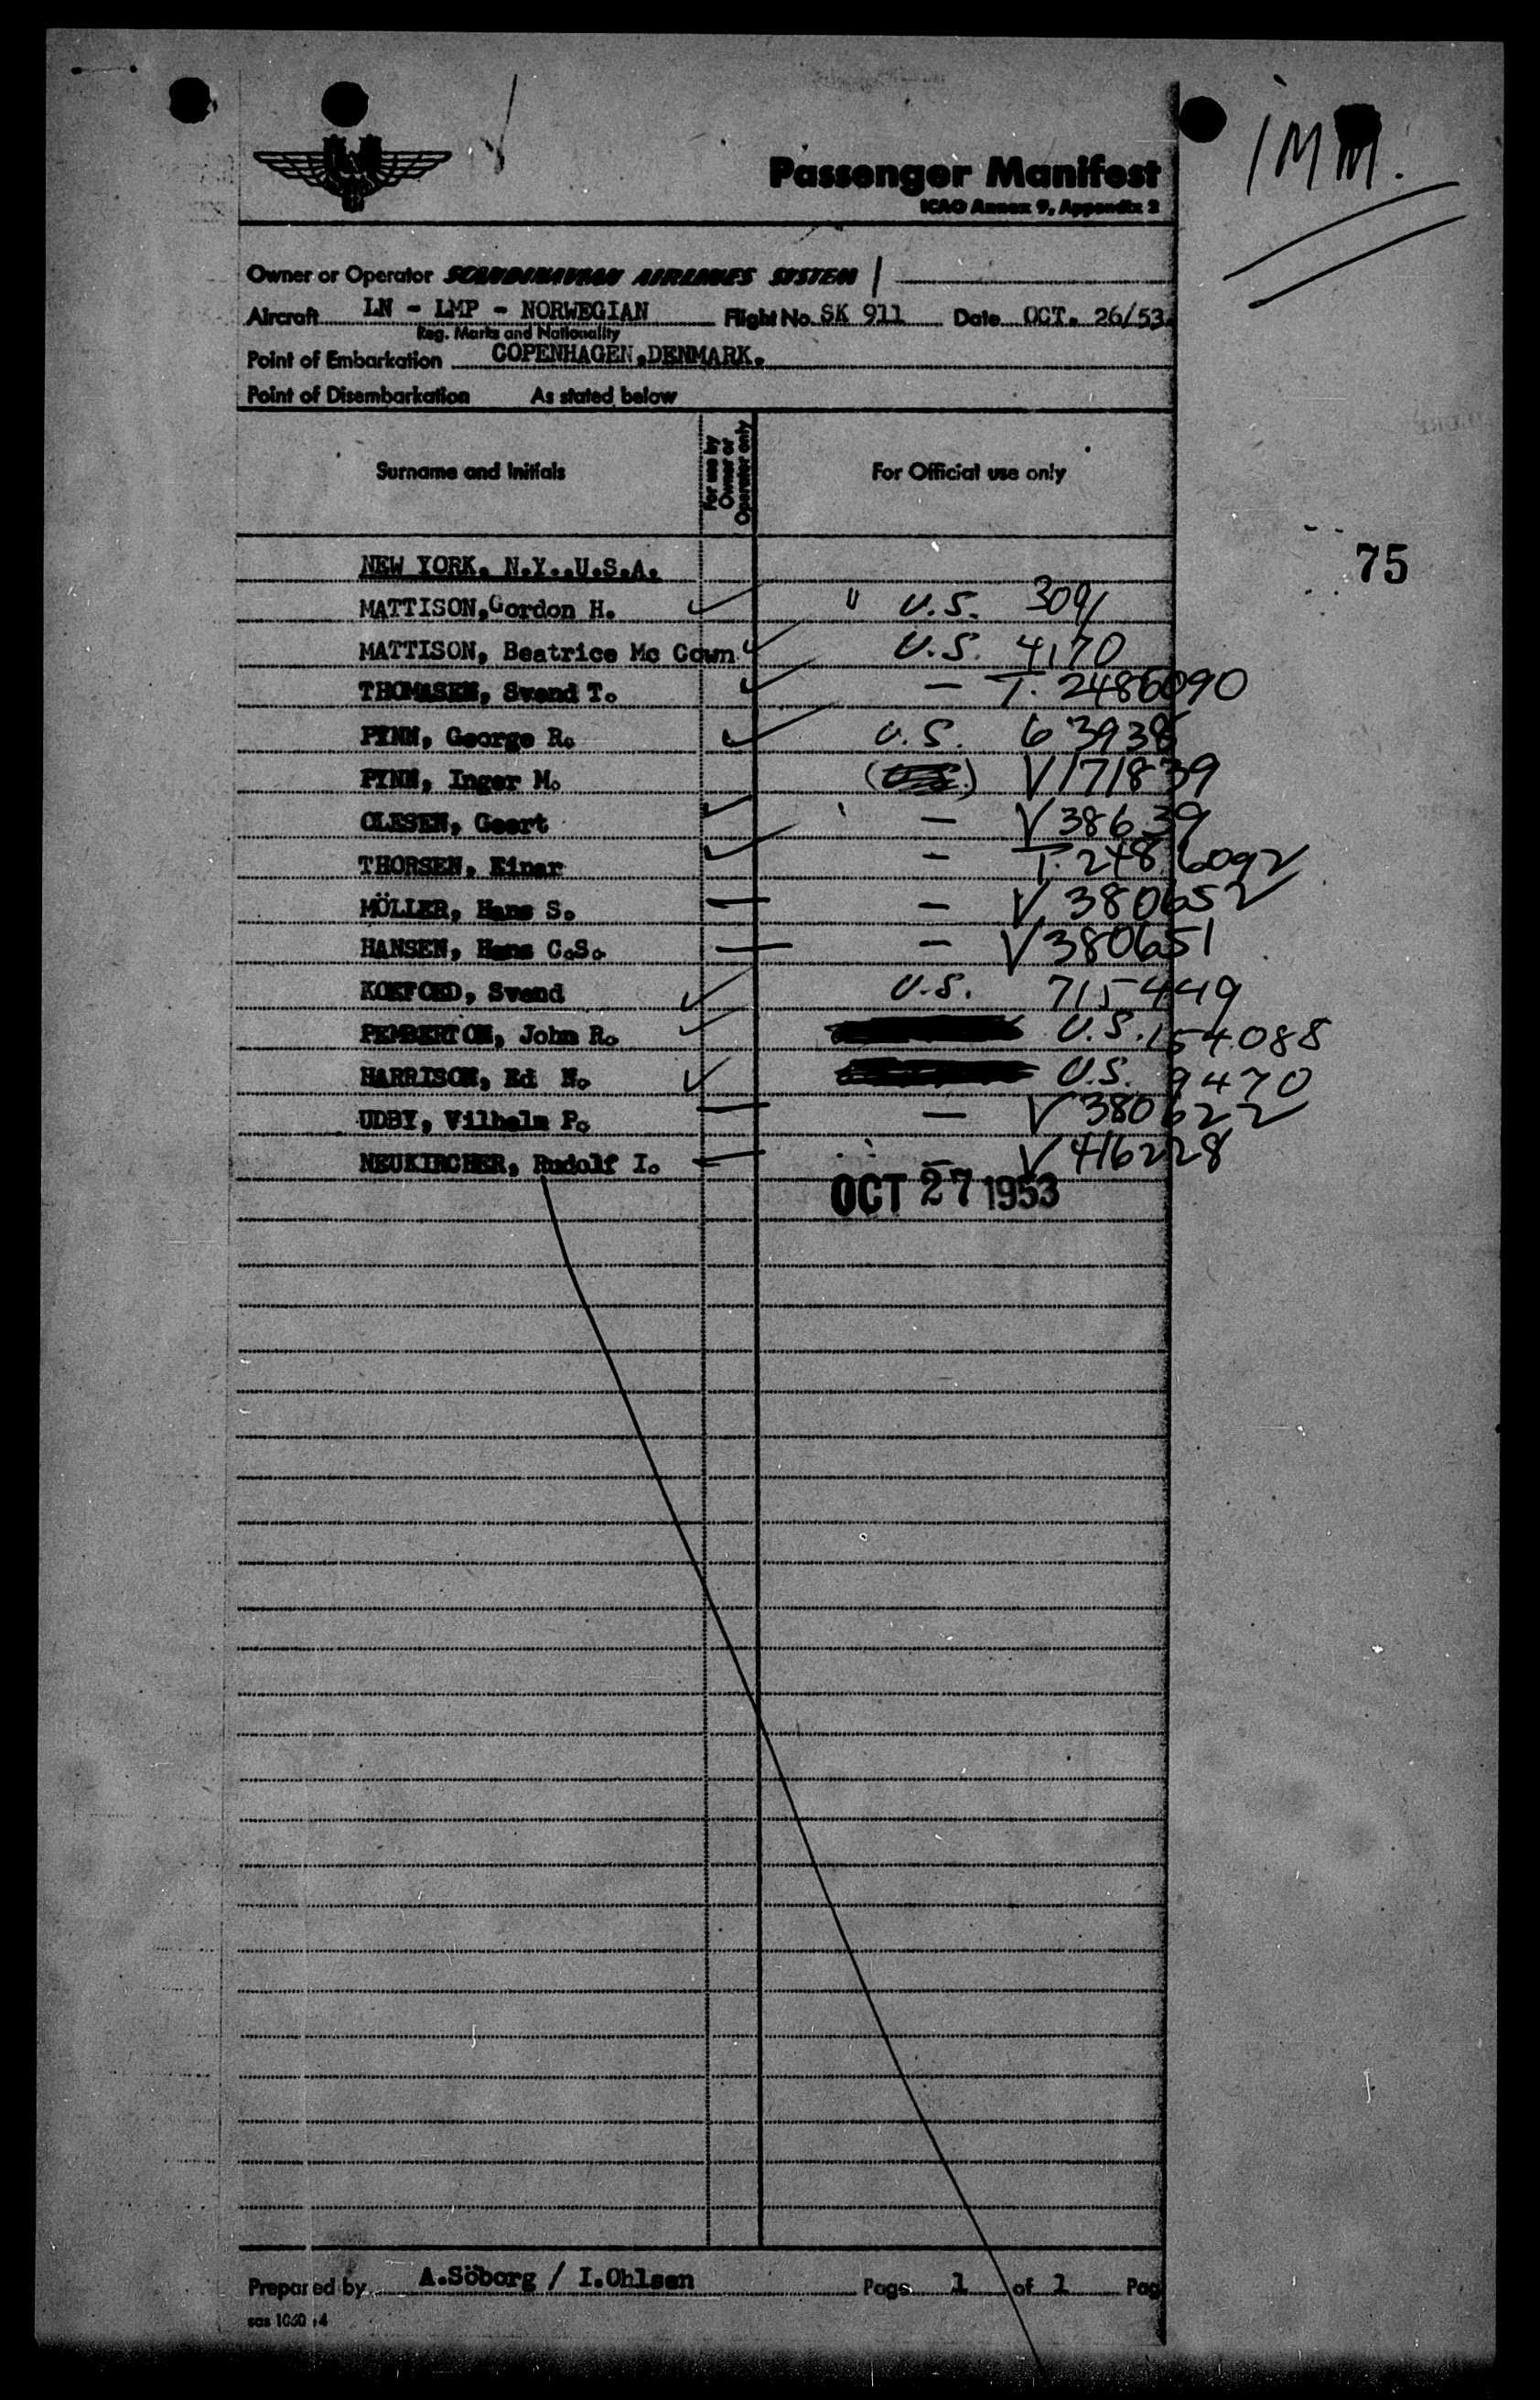 IMM.
Passenger Manifest
ICAO Annex 9, Appendix 2
Owner or Operator SCANDINAVIAN AIRLINES SYSTEM
Aircraft LN - LMP - NORWEGIAN Flight No. SK 911 Date OCT. 26/53.
Reg. Marks and Nationality
Point of Embarkation COPENHAGEN,DENMARK.
Point of Disembarkation As stated below
Surname and Initials For use by Owner or Operator only For Official use only
75
NEW YORK. N.Y..U.S.A.
MATTISON,Gordon H. " U.S. 3091
MATTISON, Beatrice Mc Cown U.S. 4170
THOMASEN, Svend T. — T. 2486090
FYNN, George R. U.S. 63938
FYNN, Inger M. V171839
OLESEN, Geert — V38639
THORSEN, Einar — T. 2486092
MÖLLER, Hans S. — V 380652
HANSEN, Hans C.S. — V380651
KOEFOED, Svend U.S. 715449
PEMBERTON, John R. U.S. 154088
HARRISON, Ed N. U.S. 9470
UDBY, Vilhelm P. — V 380622
NEUKIRCHER, Rudolf I. — V 416228
OCT 27 1953
Prepared by A.Söborg / I.Ohlsen Page 1 of 1 Pag
sas 1060